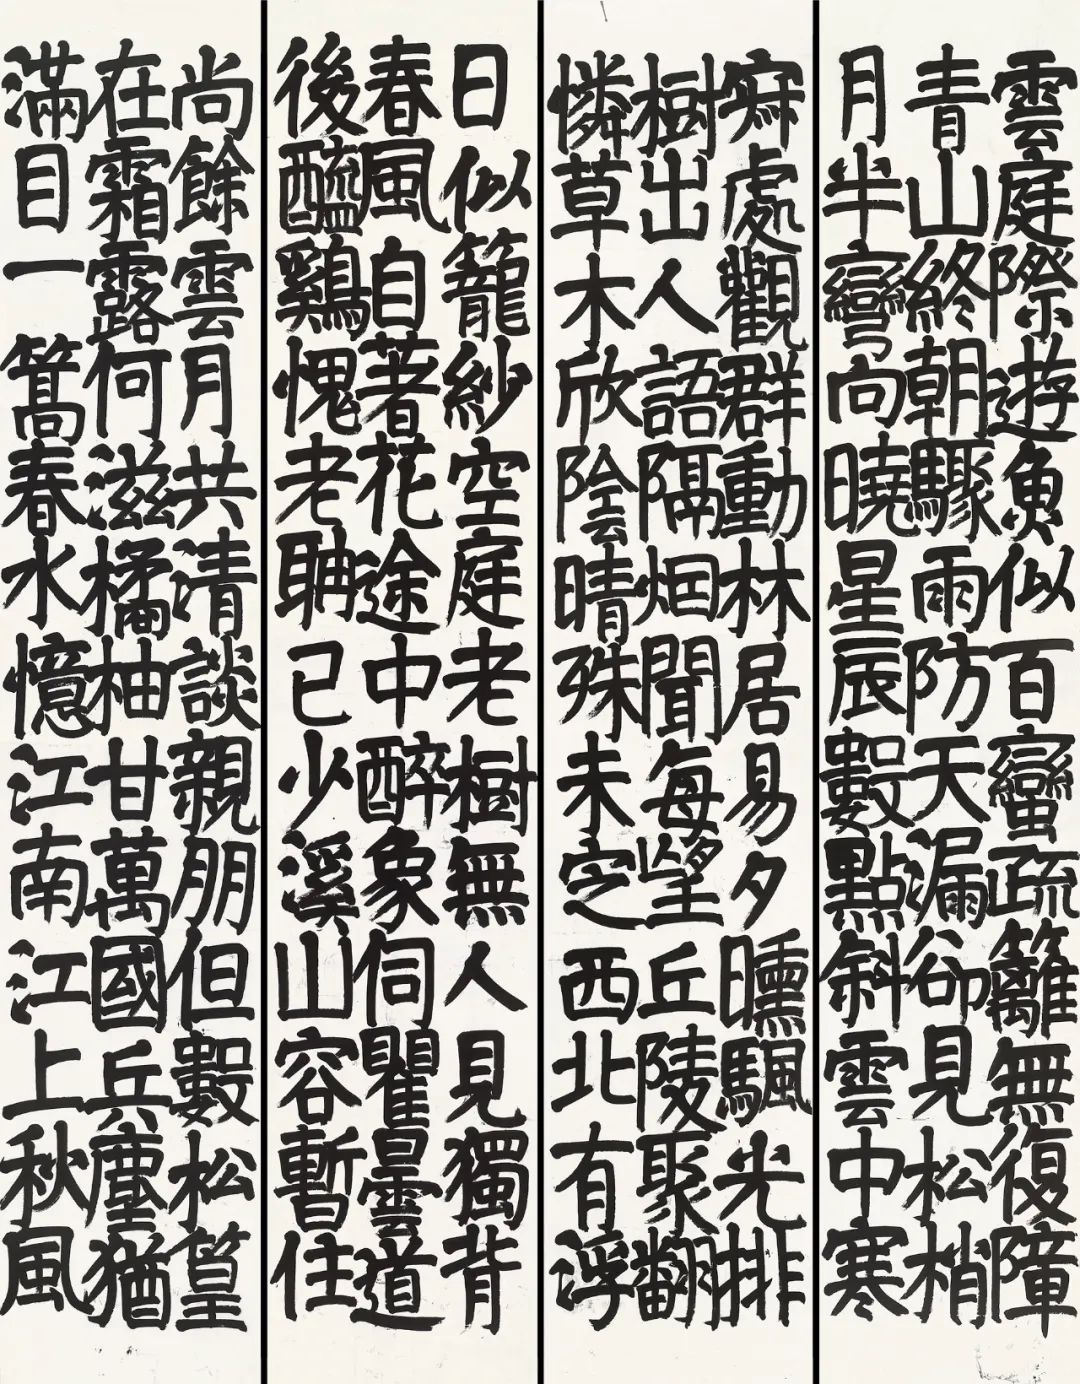 雲庭際遊魚似百蠻疏籬無復障
青山終朝驟雨防天漏卻見松梢
月半彎向曉星辰數點斜雲中寒
寂處觀群動林居易夕曛颿光排
樹出人語隔烟聞每望丘陵聚翻
憐草木欣陰晴殊未定西北有浮
日似籠紗空庭老樹無人見獨背
春風自著花途中醉象伺瞿曇道
後醯鷄愧老聃已少溪山容暫住
尚餘雲月共清談親朋但數松篁
在霜露何滋橘柚甘萬國兵塵猶
滿目一篙春水憶江南江上秋風